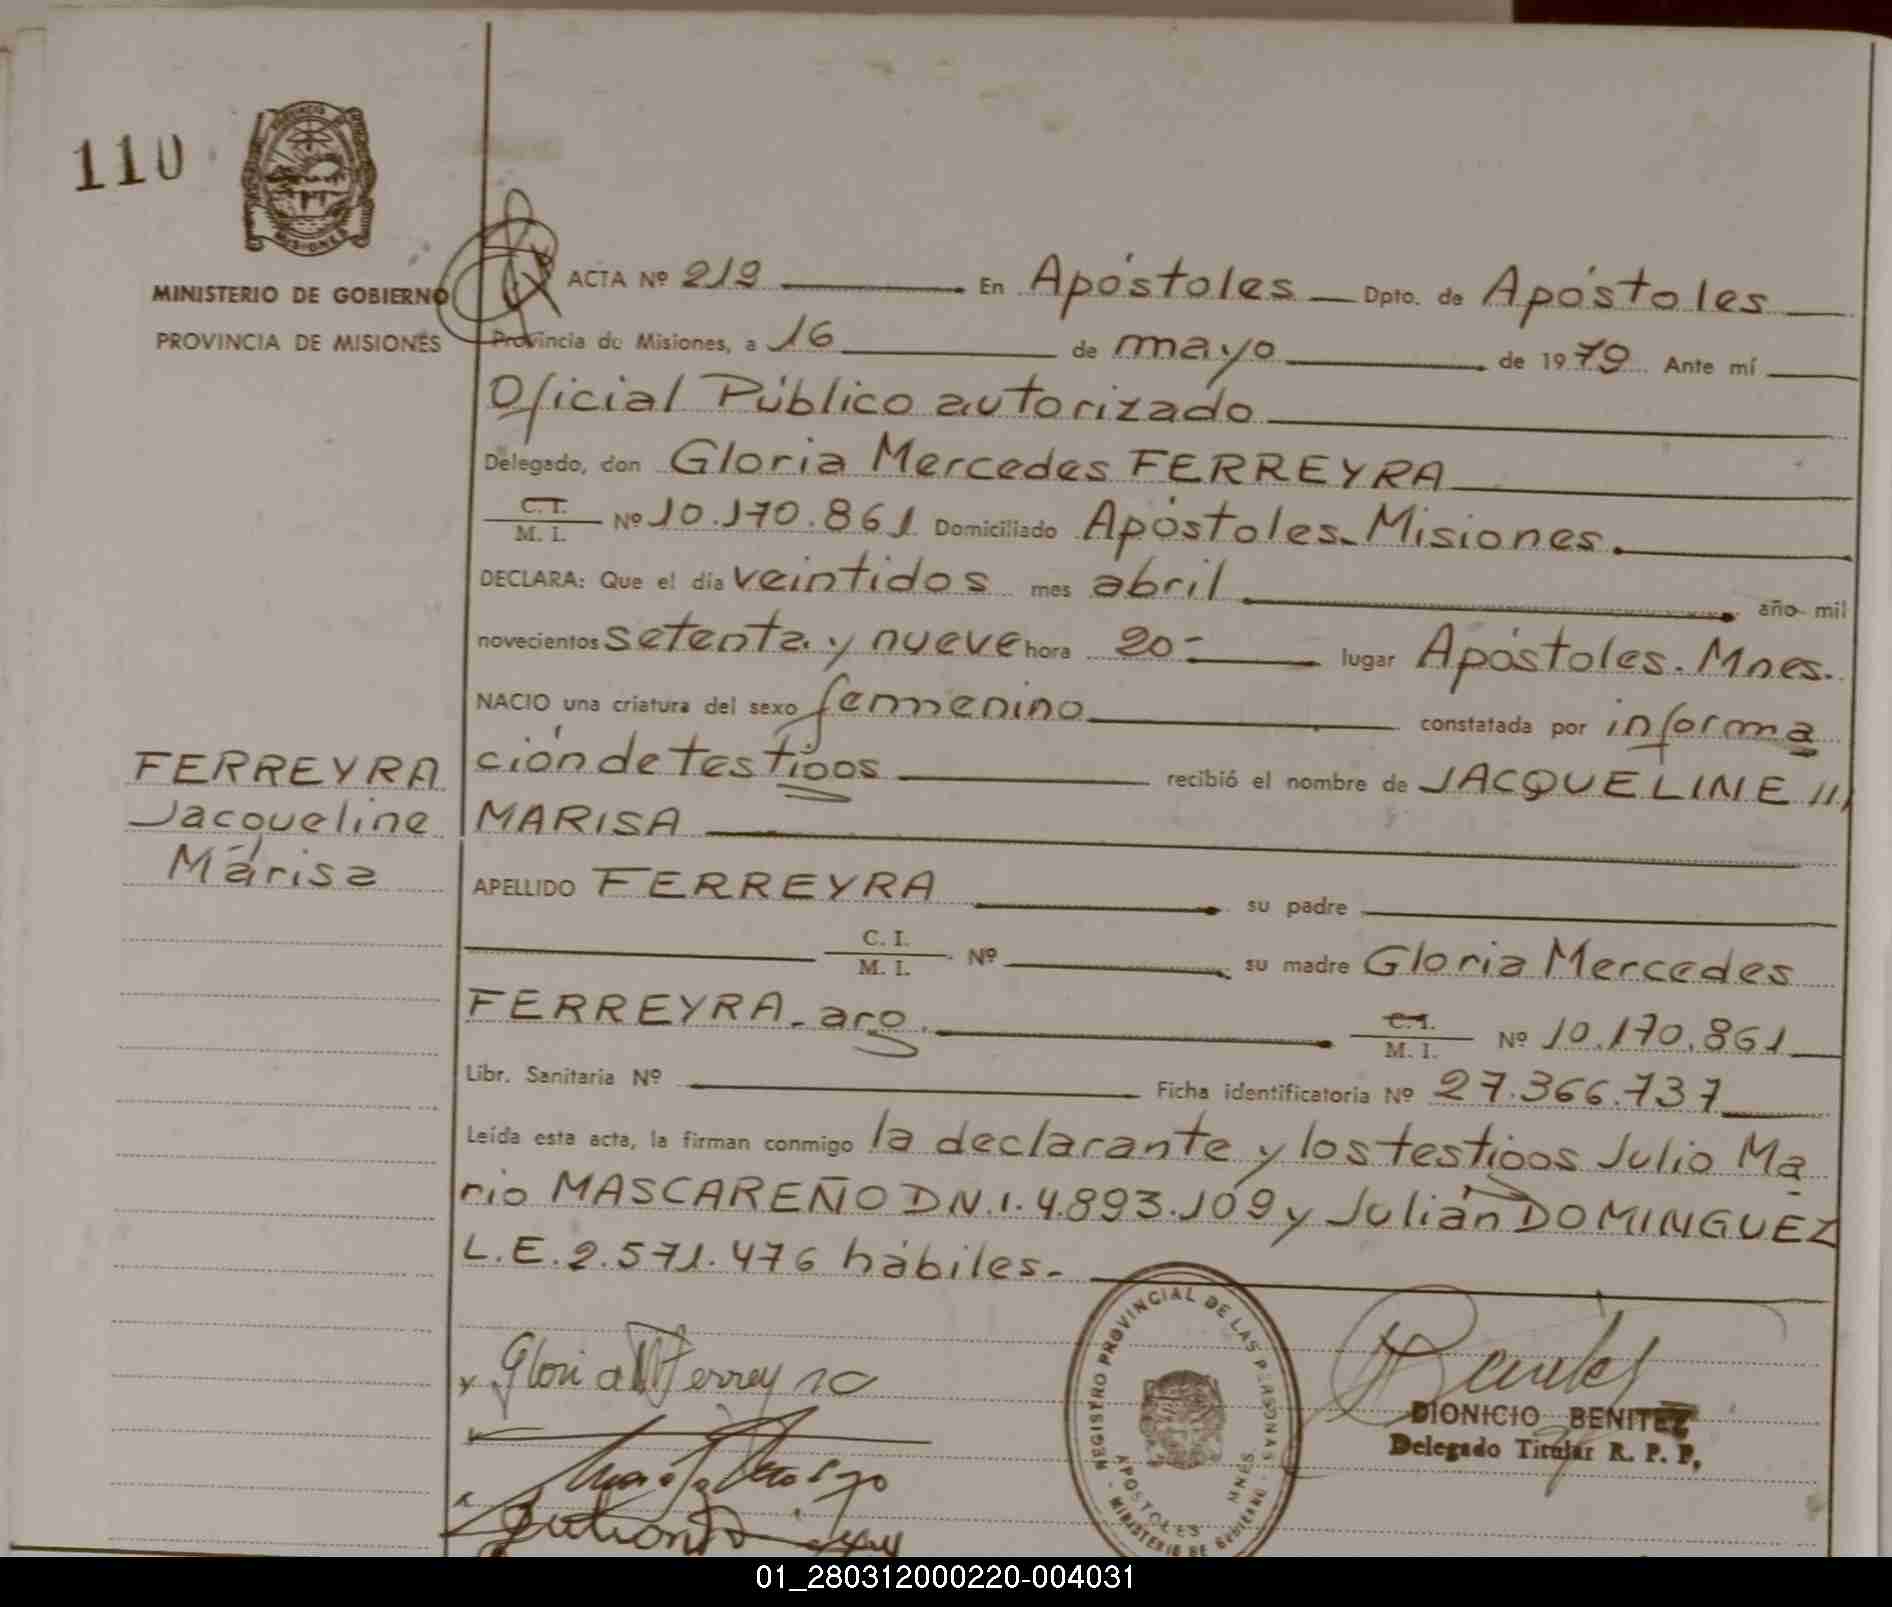 110
PROVINCIA
MISIONES
MINISTERIO DE GOBIERNO
PROVINCIA DE MISIONES
ACTA Nº 219 En Apóstoles Dpto. de Apóstoles
Provincia de Misiones, a 16 de mayo de 1979 Ante mí
Oficial Público autorizado
Delegado, don Gloria Mercedes FERREYRA
C.I. M. I. Nº 10.170.861 Domiciliado Apóstoles-Misiones.
DECLARA: Que el día veintidos mes abril año mil
novecientos setenta y nueve hora 20- lugar Apóstoles. Mnes.
NACIO una criatura del sexo femenino constatada por informa
ción de testigos recibió el nombre de JACQUELINE
MARISA
FERREYRA
Jacqueline
Marisa
APELLIDO FERREYRA su padre
C. I. M. I. Nº su madre Gloria Mercedes
FERREYRA - arg. C.I. M. I. Nº 10.170.861
Libr. Sanitaria Nº Ficha identificatoria Nº 27.366.737
Leída esta acta, la firman conmigo la declarante y los testigos Julio Ma
rio MASCAREÑO DN.I. 4.893.109 y Julián DOMINGUEZ
L.E. 2.571.476 hábiles.-
Gloria M Ferreyra
REGISTRO PROVINCIAL DE LAS PERSONAS
APOSTOLES MNES
MINISTERIO DE GOBIERNO
DIONICIO BENITEZ
Delegado Titular R. P. P.
01_280312000220-004031